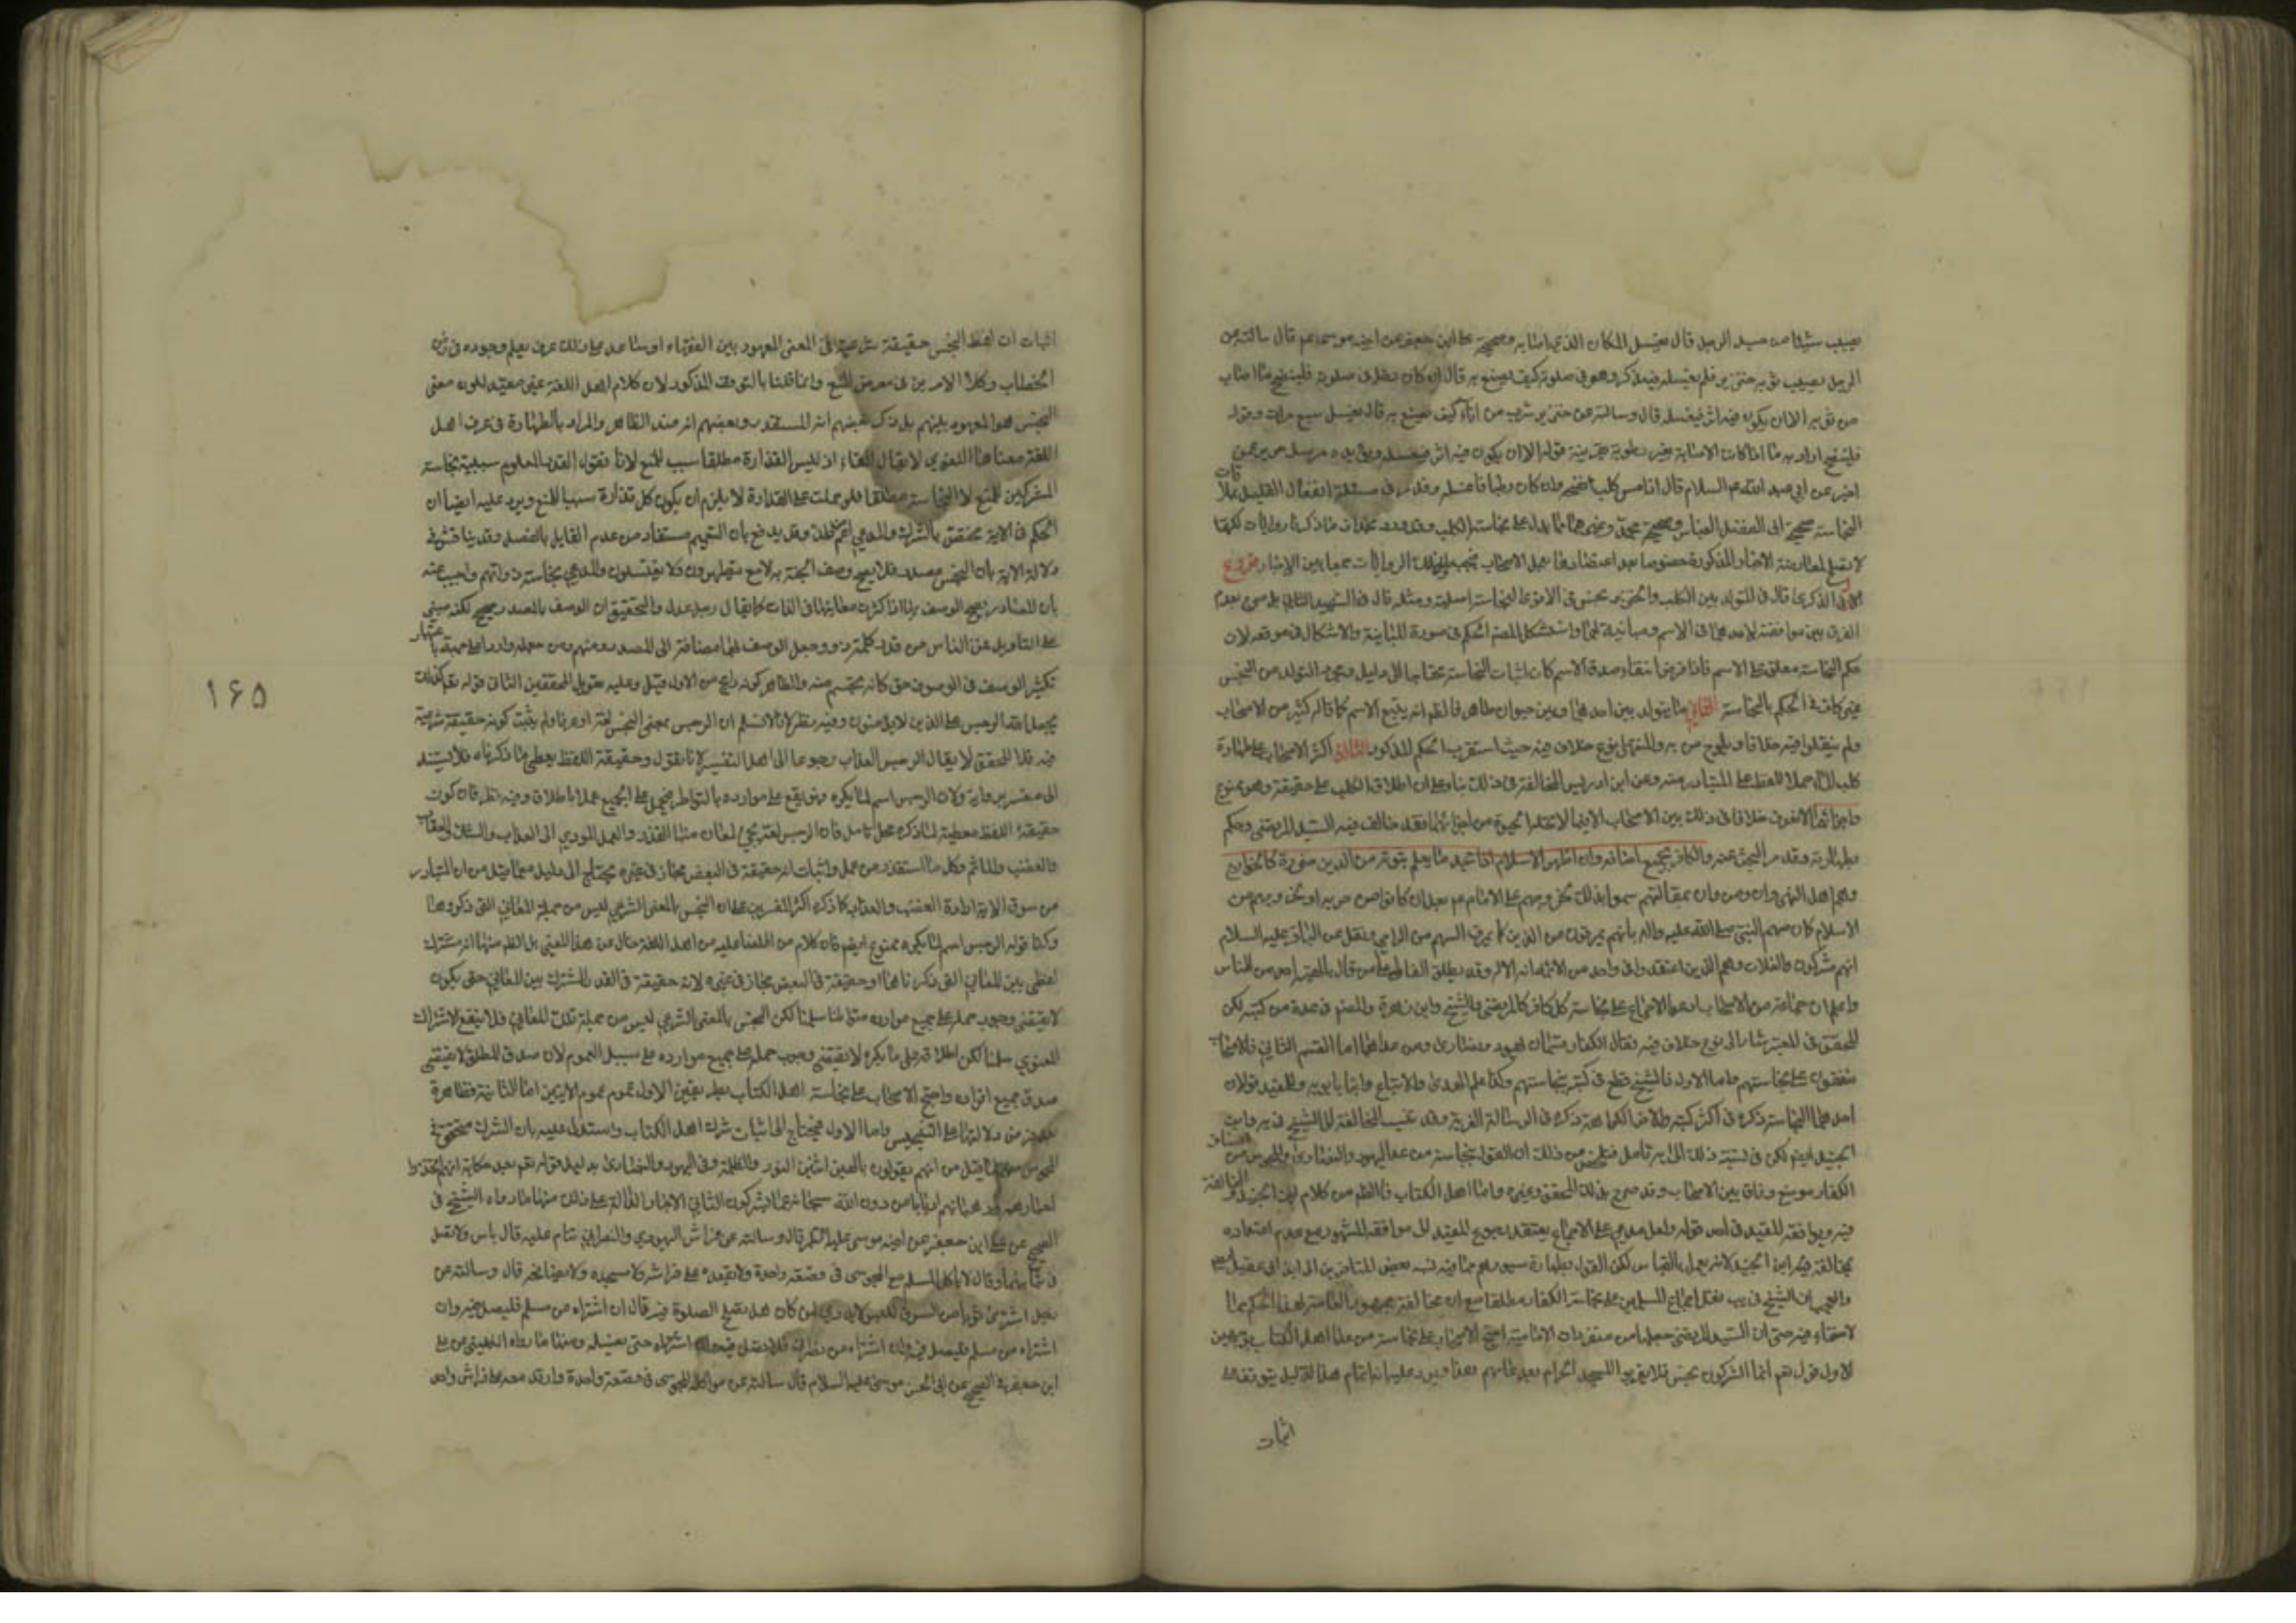 يصيب شيئا من جسد الرجل قال يغسل المكان الذي اصابه وصحيحة علي بن جعفر عن اخيه موسى عم قال سالته عن
الرجل يصيب ثوبه خنزير فلم يغسله فيذكر وهو في صلوته كيف يصنع به قال ان كان دخل في صلوته فلينضح ما اصاب
من ثوبه الا ان يكون فيه اثر فيغسله قال وسالته عن خنزير شرب من اناء كيف يصنع به قال يغسل سبع مرات وقوله
فلينضح اراد به ما اذا كانت الاصابة بغير رطوبة بقرينة قوله الا ان يكون فيه اثر فيغسله ويؤيده مرسل حريز عمن
اخبره عن ابي عبد الله عم السلام قال اذا مس كلب فانضحه وان كان رطبا فاغسله وقد في مسئلة انفعال القليل بملاقات
النجاسة صحيحة ابي الفضل العباس وصحيحة محمد وغيرهما مما يدل على نجاسة الكلب وقد بخلاف ما ذكرنا روايات لكنها
لا تصلح لمعارضة الاخبار المذكورة خصوصا بعد اعتضادها بعمل الاصحاب تلك الروايات جمعا بين الاخبار فروع
الاول الذكرى قال في المتولد بين الكلب والخنزير نجس في الاقوى لنجاسة اصليه ومثله قال الشهيد الثاني بل صرح بعدم
الفرق بين موافقته لاحدهما في الاسم ومباينته لهما واستشكل المصنف الحكم في صورة المباينة والاشكال في موقعه لان
حكم النجاسة معلق على الاسم فاذا فرض انتفاء صدق الاسم كان اثبات النجاسة محتاجا الى دليل ومجرد التولد من النجس
غير كاف في الحكم بالنجاسة الثاني ما يتولد بين احدهما وبين حيوان طاهر فالظم انه يتبع الاسم كما قاله كثير من الاصحاب
ولم ينقلوا فيه خلافا ويلوح من يه والمنتهى نوع خلاف فيه حيث استقرب الحكم المذكور الثالث اكثر الاصحاب على طهارة
كلب الماء حملا للفظ على المتبادر منه وعن ابن ادريس المخالفة في ذلك بناء على ان اطلاق الكلب على حقيقة وهو ممنوع
واجزائهما لا نعرف خلافا في ذلك بين الاصحاب الا فيما لا تحله الحيوة من اجزائهما فقد خالف فيه السيد المرتضى وحكم
بطهارته وقد مر البحث عنه والكافر بجميع اصنافه وان اظهر الاسلام اذا جحد ما يعلم ثبوته من الدين ضرورة كالخوارج
وهم اهل النهروان ومن دان بمقالتهم سموا بذلك لخروجهم على الامام عم بعد ان كانوا من حزبه او لخروجهم من
الاسلام كما وصفهم النبي صلى الله عليه واله بانهم يمرقون من الدين كما يمرق السهم من الرامي ونقل عن الباقر عليه السلام
انهم مشركون والغلاة وهم الذين اعتقدوا في واحد من الائمة انه الاله وقد يطلق الغالي على من قال بالهية احد من الناس
واعلم ان جماعة من الاصحاب ادعوا الاجماع على نجاسة كل كافر كالمرتضى والشيخ وابن زهرة والمصنف في عدة من كتبه لكن
المحقق في المعتبر اشار الى نوع خلاف فيه فقال الكفار قسمان يهود ونصارى ومن عداهما اما القسم الثاني فالاصحاب
متفقون على نجاستهم واما الاول فالشيخ قطع في كتبه بنجاستهم وكذا علم الهدى والاتباع وابنا بابويه وللمفيد قولان
احدهما النجاسة ذكره في اكثر كتبه والاخر الكراهة ذكره في الرسالة الغرية وقد نسب المخالفة الى الشيخ في يه وابن
الجنيد ايضا لكن في نسبة ذلك الى يه تامل فتلخص من ذلك ان القول بنجاسة من عدا اليهود والنصارى والمجوس من اصناف
الكفار موضع وفاق بين الاصحاب وقد صرح بذلك المحقق وغيره واما اهل الكتاب فالظم من كلام ابن الجنيد المخالفة
فيه ويوافقه المفيد في احد قوليه ولعل مدعي الاجماع يعتقد رجوع المفيد الى موافقة المشهور مع عدم اعتداده
بمخالفة ابن الجنيد لانه يعمل بالقياس لكن القول بطهارة سورهم مما فيه نسبه بعض المتاخرين الى ابن ابي عقيل ايضا
والعجب ان الشيخ في يب نقل اجماع المسلمين على نجاسة الكفار مطلقا مع ان مخالفة جمهور العامة لهذا الحكم مما
لا خفاء فيه حتى ان السيد المرتضى جعلها من متفردات الامامية احتج الاصحاب على نجاسة من عدا اهل الكتاب بوجهين
الاول قوله تعم انما المشركون نجس فلا يقربوا المسجد الحرام بعد عامهم هذا ويرد عليه ان اتمام هذا الدليل يتوقف على
اثبات
اثبات ان لفظ النجس حقيقة شرعية في المعنى المعهود بين الفقهاء او يعلم وجوده في زمن
الخطاب وكلا الامرين في معرض المنع وانما قلنا بالتوقف المذكور لان كلام اهل اللغة غير مفيد لكون معنى
النجس هو المعهود بينهم بل ذكر بعضهم انه المستقذر وبعضهم انه ضد الطاهر والمراد بالطهارة في عرف اهل
اللغة معناها اللغوي لا يقال اذ ليس القذارة مطلقا سبب للمنع لانا نقول القدر المعلوم سببية نجاسة
المشركين للمنع لا النجاسة مطلقا فلو حملت على القذارة لا يلزم ان يكون كل قذارة سببا للمنع ويرد عليه ايضا ان
الحكم في الاية مختص بالشرك والمدعى اعم من ذلك وقد يدفع بان التعميم مستفاد من عدم القائل بالفصل وقد يناقش في
دلالة الاية بان النجس مصدر فلا يصح وصف الجثة به الا مع
بان المصادر يصح الوصف بها اذا كثرت معانيها في الذات كما يقال رجل عدل والتحقيق ان الوصف بالمصدر صحيح لكنه مبني
على التاويل فمن الناس من قدر كلمة ذو وجعل الوصف لها مضافة الى المصدر ومنهم من جعله واردا على جهة باعتبار
تكثير الوصف في الموصوف حتى كانه تجسم منه والظاهر كونه راجح من الاول قيل وعليه تعويل المحققين الثاني قوله تعم كذلك
يجعل الله الرجس على الذين لا يؤمنون وفيه نظر لانا لا نسلم ان الرجس بمعنى النجس لغة او عرفا ولم يثبت كونه حقيقة شرعية
فيه قال المحقق لا يقال الرجس العذاب رجوعا الى اهل التفسير لانا نقول حقيقة اللفظ يعطي ما ذكرناه فلا يستند
الى مفسر برواية ولان الرجس اسم لما يكره فهو يقع على موارده بالتواطؤ فيحمل على الجميع عملا بالاطلاق وفيه نظر فان كون
حقيقة اللفظ معطية لما ذكره محل تامل فان الرجس لغة يجيء لمعان منها القذر والعمل المودي الى العذاب والشك والعقاب
والغضب والماثم وكل ما استقذر من عمل واثبات انه حقيقة في البعض مجاز في غيره يحتاج الى دليل مع ما قيل من ان المتبادر
من سوق الاية ارادة الغضب والعذاب كما ذكره اكثر المفسرين على ان النجس بالمعنى الشرعي ليس من جملة المعاني التي ذكروها
وكذا قوله الرجس اسم لما يكره ممنوع ايضم فان كلام من اطلعنا عليه من اهل اللغة خال عن هذا المعنى بل الظم منها انه مشترك
لفظي بين المعاني التي ذكرناها او حقيقة في البعض مجاز في غيره لا انه حقيقة في القدر المشترك بين المعاني حتى يكون
لا يقتضي وجوب حمله على جميع موارده متواطئا سلمنا لكن النجس بالمعنى الشرعي ليس من جملة تلك المعاني فلا ينفع الاشتراك
المعنوي سلمنا لكن اطلاقه على ما يكره لا يقتضي وجوب حمله على جميع موارده على سبيل العموم لان صدق المطلق لا يقتضي
صدق جميع افراده واحتج الاصحاب على نجاسة اهل الكتاب بطريقين الاول عموم الايتين اما الثانية فظاهرة
من دلالتها على التنجيس واما الاول فيحتاج الى اثبات شرك اهل الكتاب واستدل عليه بان الشرك متحقق في
المجوس لما قيل من انهم يقولون بالهين اثنين النور والظلمة وفي اليهود والنصارى بدليل قوله تعم بعد حكاية انهم اتخذوا
احبارهم ورهبانهم اربابا من دون الله سبحانه عما يشركون الثاني الاخبار الدالة على ذلك منها ما رواه الشيخ في
الصحيح عن علي بن جعفر عن اخيه موسى عليه السلام قال وسالته عن فراش اليهودي والنصراني ينام عليه قال لا باس ولا تصل
في ثيابهما وقال لا ياكل المسلم مع المجوسي في قصعة واحدة ولا يقعده على فراشه ولا مسجده ولا يصافحه قال وسالته عن
رجل اشترى ثوبا من السوق للبس لا يدري لمن كان هل يصلح الصلوة فيه قال ان اشتراه من مسلم فليصل فيه وان
اشتراه من نصراني فلا يصل فيه حتى يغسله ومنها ما رواه الكليني عن علي
ابن جعفر في الصحيح عن ابي الحسن موسى عليه السلام قال سالته عن مواكلة المجوسي في قصعة واحدة وارقد معه على فراش واحد
۱۶۵